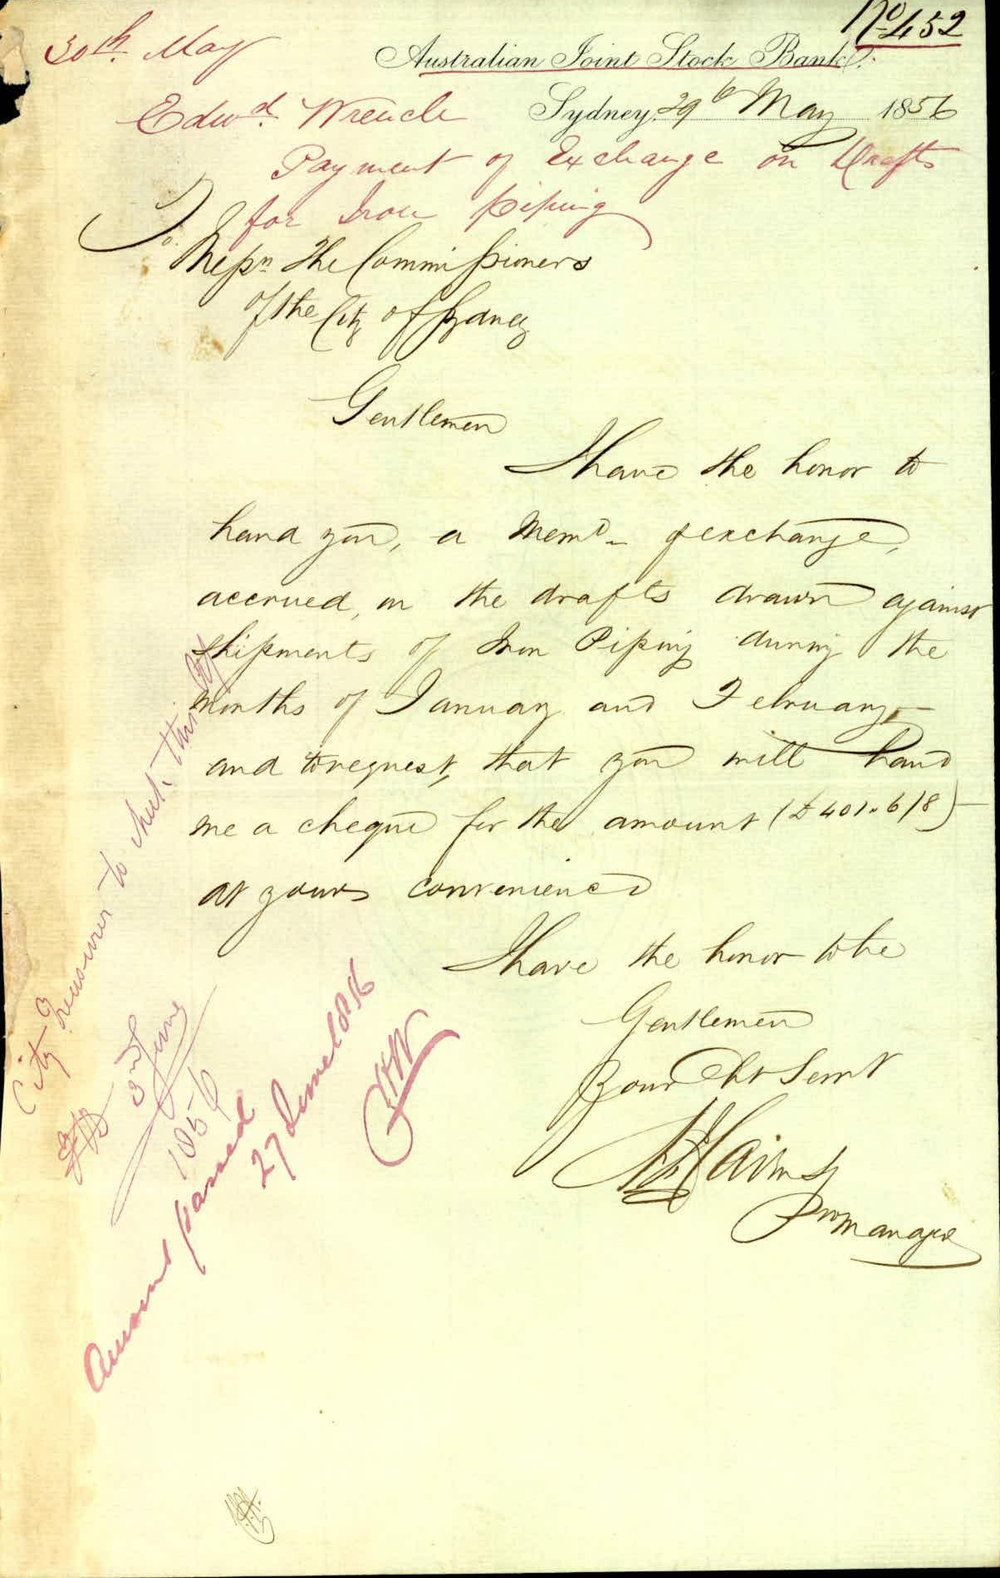 No 452
30th May
Australian Joint Stock Bank
Edwd. Wrench
Sydney 29th May 1856
Payment of Exchange on Drafts
for Iron Piping
To
Messrs The Commissioners
of the City of Sydney
Gentlemen
I have the honor to
hand you, a Memo of exchange,
accrued, on the drafts drawn against
Shipments of Iron Piping during the
Months of January and February,
and to request, that you will hand
me a cheque for the amount (£401.6/8)
at yours convenience
I have the honor to be
Gentlemen
Your Obt Servt
Pro Manager
City Treasurer to check this
3rd June
1856
Amount passed
27 June 1856